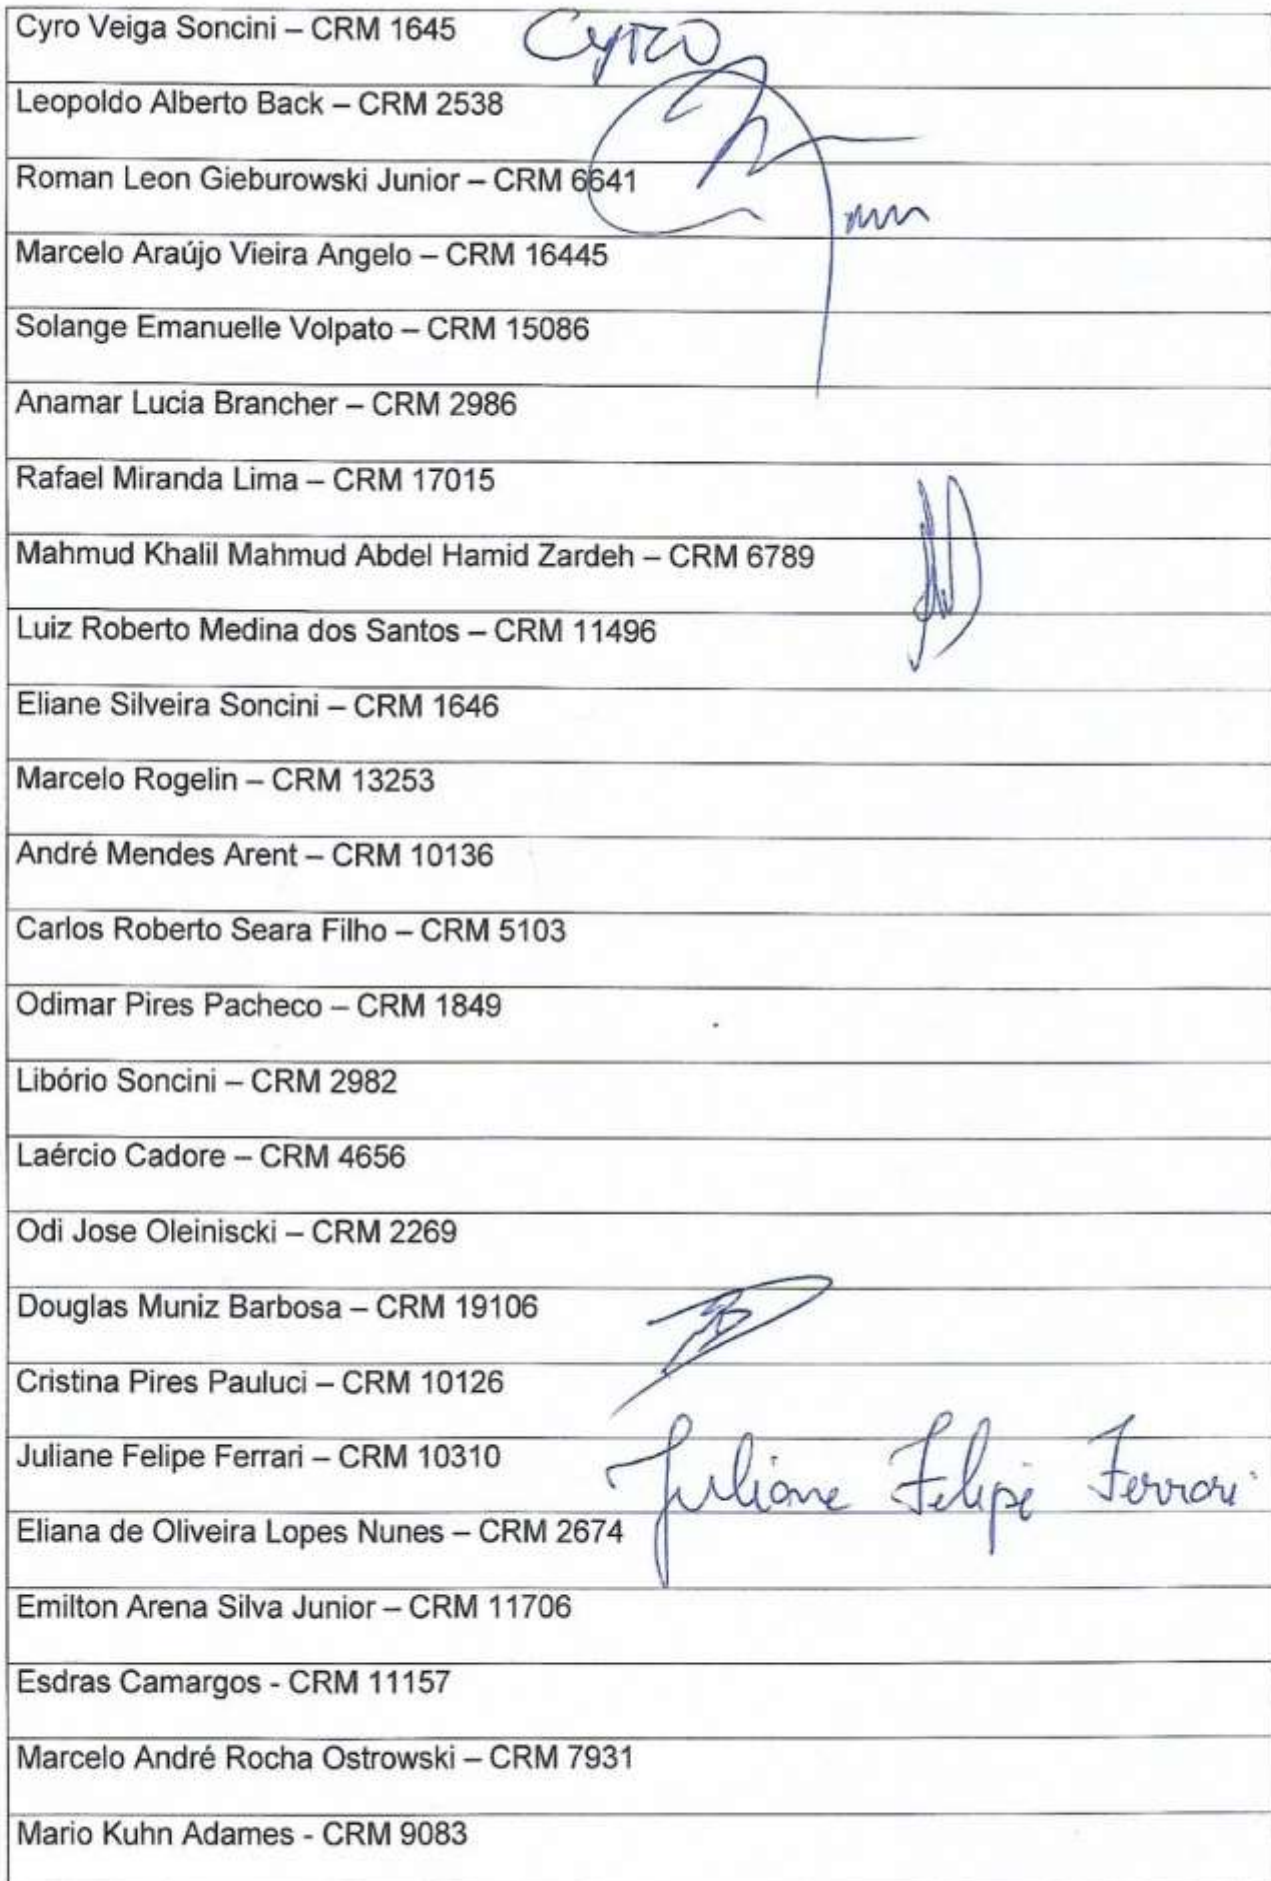 Cyro Veiga Soncini – CRM 1645 Cyro
Leopoldo Alberto Back – CRM 2538
Roman Leon Gieburowski Junior – CRM 6641
Marcelo Araújo Vieira Angelo – CRM 16445
Solange Emanuelle Volpato – CRM 15086
Anamar Lucia Brancher – CRM 2986
Rafael Miranda Lima – CRM 17015
Mahmud Khalil Mahmud Abdel Hamid Zardeh – CRM 6789
Luiz Roberto Medina dos Santos – CRM 11496
Eliane Silveira Soncini – CRM 1646
Marcelo Rogelin – CRM 13253
André Mendes Arent – CRM 10136
Carlos Roberto Seara Filho – CRM 5103
Odimar Pires Pacheco – CRM 1849
Libório Soncini – CRM 2982
Laércio Cadore – CRM 4656
Odi Jose Oleiniscki – CRM 2269
Douglas Muniz Barbosa – CRM 19106
Cristina Pires Pauluci – CRM 10126
Juliane Felipe Ferrari – CRM 10310 Juliane Felipe Ferrari
Eliana de Oliveira Lopes Nunes – CRM 2674
Emilton Arena Silva Junior – CRM 11706
Esdras Camargos - CRM 11157
Marcelo André Rocha Ostrowski – CRM 7931
Mario Kuhn Adames - CRM 9083